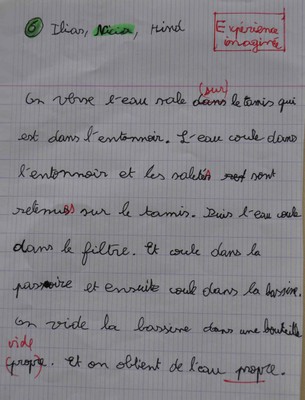 6 Ilias, Naia, Hind
Expérience
imaginée
(sur)
On verse l'eau sale dans le tamis qui
est dans l'entonnoir. L'eau coule dans
l'entonnoir et les saletés sont
retenues sur le tamis. Puis l'eau coule
dans le filtre. Et coule dans la
passoire et ensuite coule dans la bassine.
On vide la bassine dans une bouteille
vide
(propre). Et on obtient de l'eau propre.